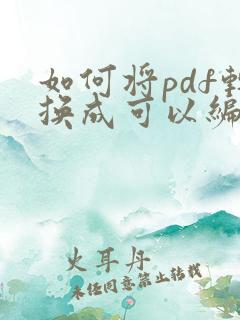 如何将pdf转
换成可以编
火耳丹
未经同意禁止转载